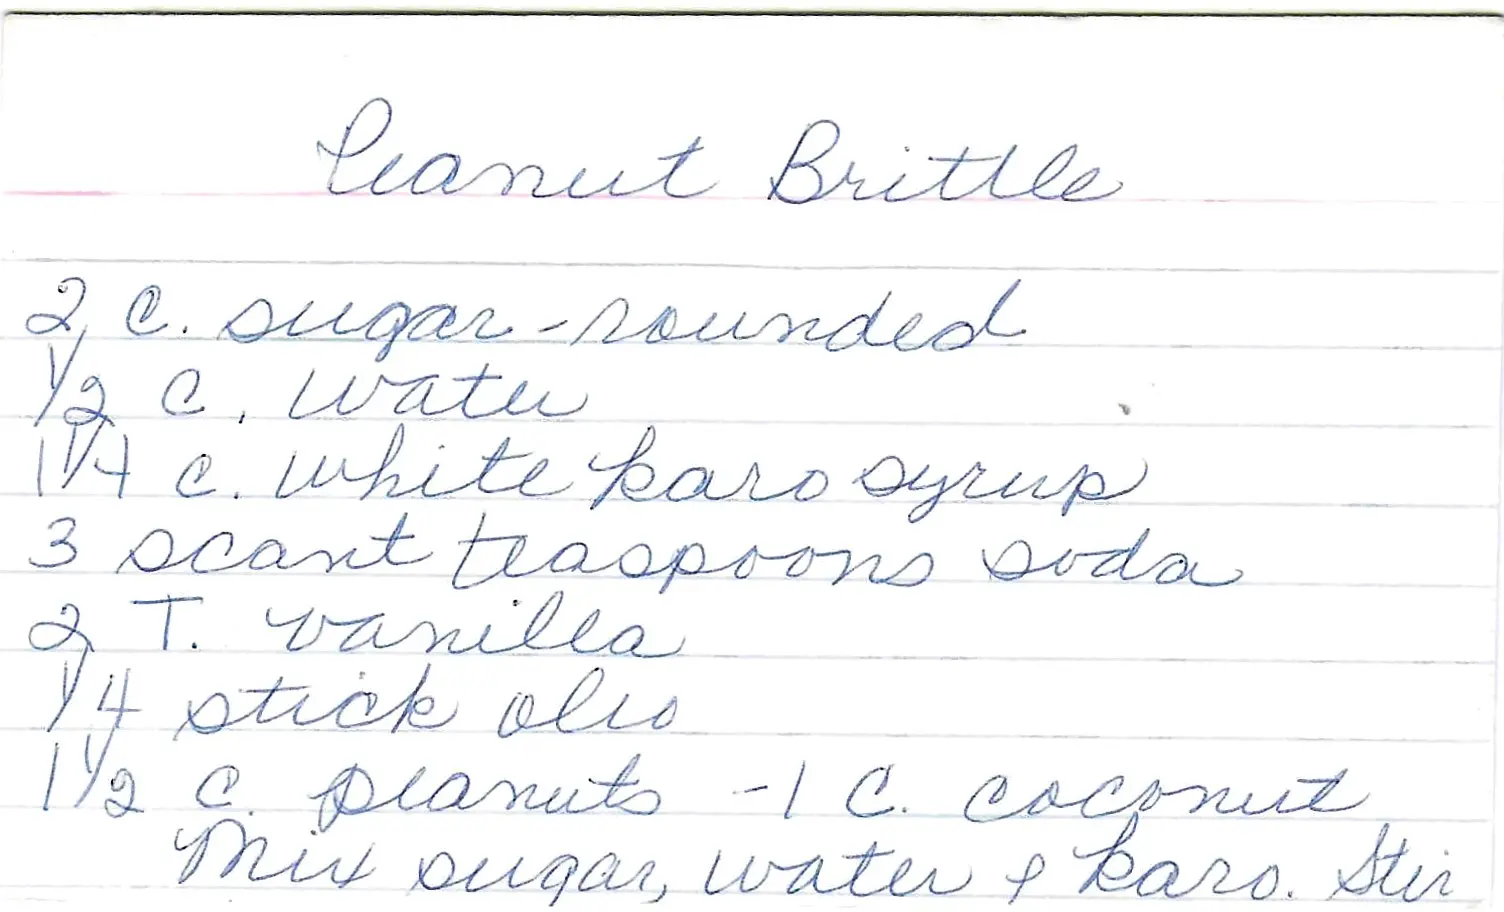 Peanut Brittle
2 C. sugar - rounded
1/2 C. water
1 1/4 c. white karo syrup
3 scant teaspoons soda
2 T. vanilla
1/4 stick oleo
1 1/2 c. peanuts - 1 C. coconut
Mix sugar, water & karo. Stir